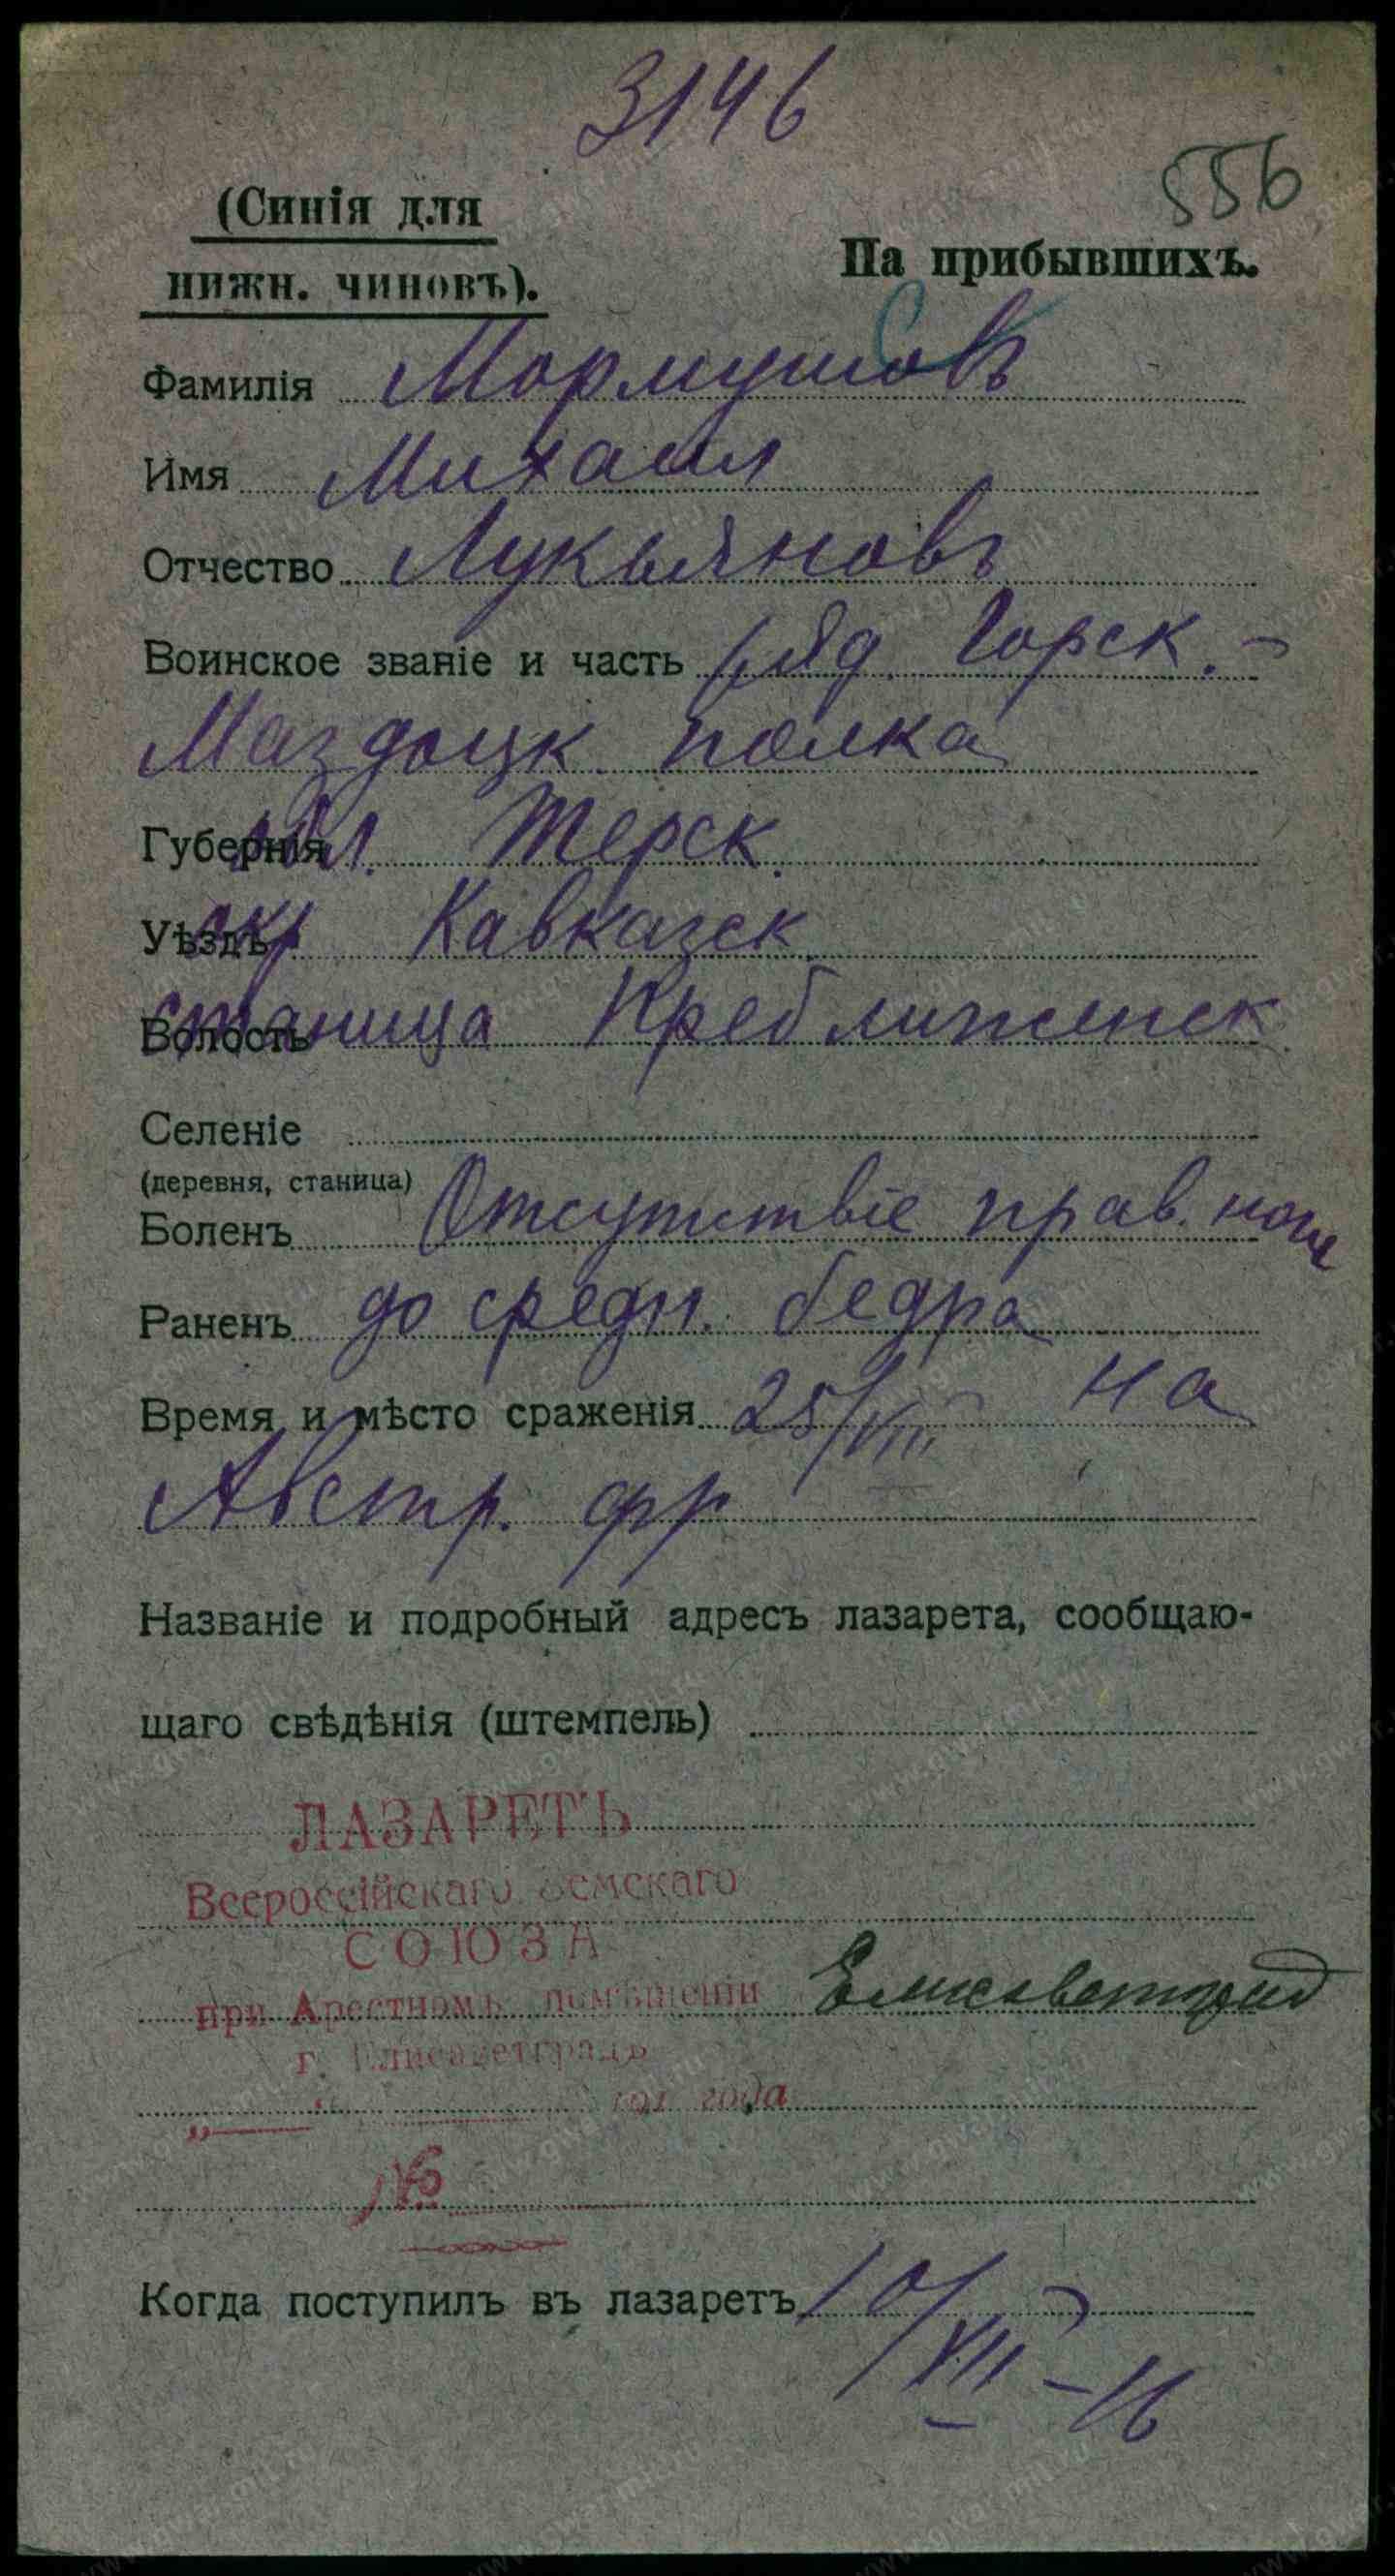 3146
556
(Синія для
нижн. чиновъ).
На прибывшихъ.
Фамилія Мормушовъ
Имя Михаил
Отчество Лукьяновъ
Воинское званіе и часть Горск.
Маздоцк полка
Губернія обл. Терск.
Уѣздъ окр Кавказск
Волость станица
Селеніе
(деревня, станица)
Боленъ Отсутствіе прав. ноги
Раненъ до средн. бедра
Время и мѣсто сраженія 25/VIII на
Австр. фр
Названіе и подробный адресъ лазарета, сообщаю-
щаго свѣдѣнія (штемпель)
ЛАЗАРЕТЪ
Всероссійскаго Земскаго
СОЮЗА
при Арестномъ помѣщеніи Елисаветград
г. Елисаветградъ
„ “ 191 года
№
Когда поступилъ въ лазаретъ 10/VIII-16